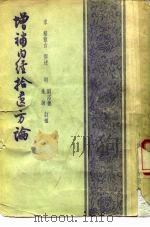 增補內經拾遺方論
宋 駱龍吉 編述 明 劉浴德 朱 練 訂補